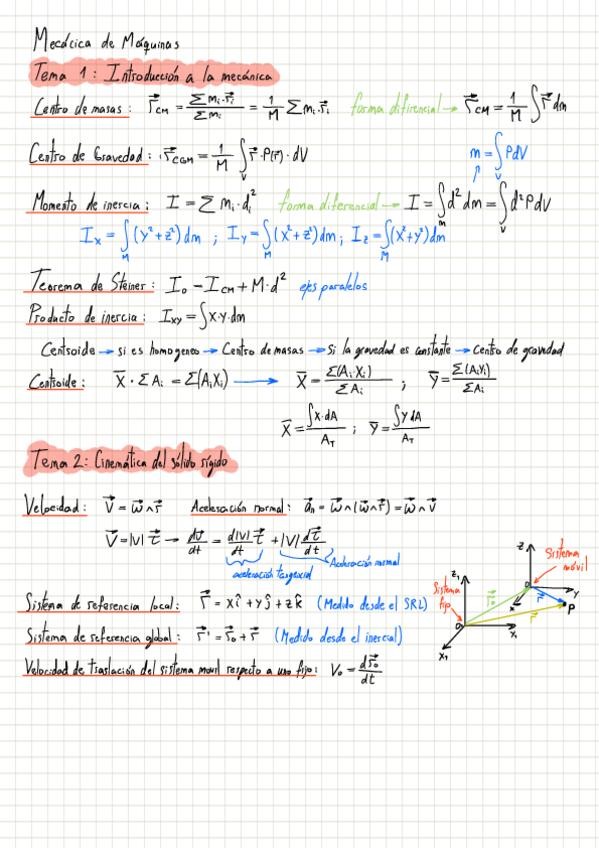 Mecácica de Máquinas
Tema 1: Introducción a la mecánica
Centro de masas: r⃗_CM = Σm_i·r⃗_i / Σm_i = 1/M Σm_i·r⃗_i forma difirencial → r⃗_CM = 1/M ∫r⃗ dm
Centro de Gravedad: r⃗_CGM = 1/M ∫_V r⃗·ρ(r⃗)·dV m = ∫_V ρdV
Momento de inercia: I = Σ m_i·d_i² forma diferencial → I = ∫_M d² dm = ∫_V d²ρdV
I_x = ∫_M (y²+z²) dm ; I_y = ∫_M (x²+z²) dm ; I_z = ∫_M (x²+y²) dm
Teorema de Steiner: I_o - I_CM + M·d² ejes paralelos
Producto de inercia: I_xy = ∫x·y·dm
Centsoide → si es homogeneo → Centro de masas → Si la gravedad es constante → Centro de gravedad
Centsoide: X̄ · ΣA_i = Σ(A_i X_i) → X̄ = Σ(A_i·X_i) / ΣA_i ; Ȳ = Σ(A_i Y_i) / ΣA_i
X̄ = ∫x·dA / A_T ; Ȳ = ∫y dA / A_T
Tema 2: Cinemática del sólido rígido
Velocidad: V⃗ = ω⃗∧r⃗ Aceleración normal: a⃗_n = ω⃗∧(ω⃗∧r⃗) = ω⃗∧V⃗
V⃗ = |V| τ⃗ → dv⃗/dt = d|V|/dt τ⃗ + |V| dτ⃗/dt
aceleración tangencial Aceleración normal
Sistema de referencia local: r⃗ = xî + yĵ + zk̂ (Medido desde el SRL)
Sistema de referencia global: r⃗' = r⃗_o + r⃗ (Medido desde el inercial)
Velocidad de traslación del sistema movil respecto a uno fijo: V_o = dr⃗_o/dt
Sistema móvil
Z
O
Y
X
P
Sistema fijo
Z_1
O
X_1
X_1
r⃗_o
r⃗
r⃗